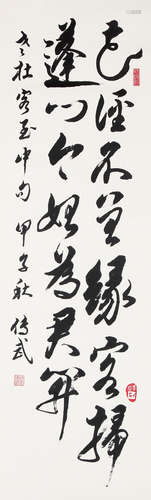 花徑不曾緣客掃
蓬門今始為君開
老杜客至中句 甲子秋 傳武